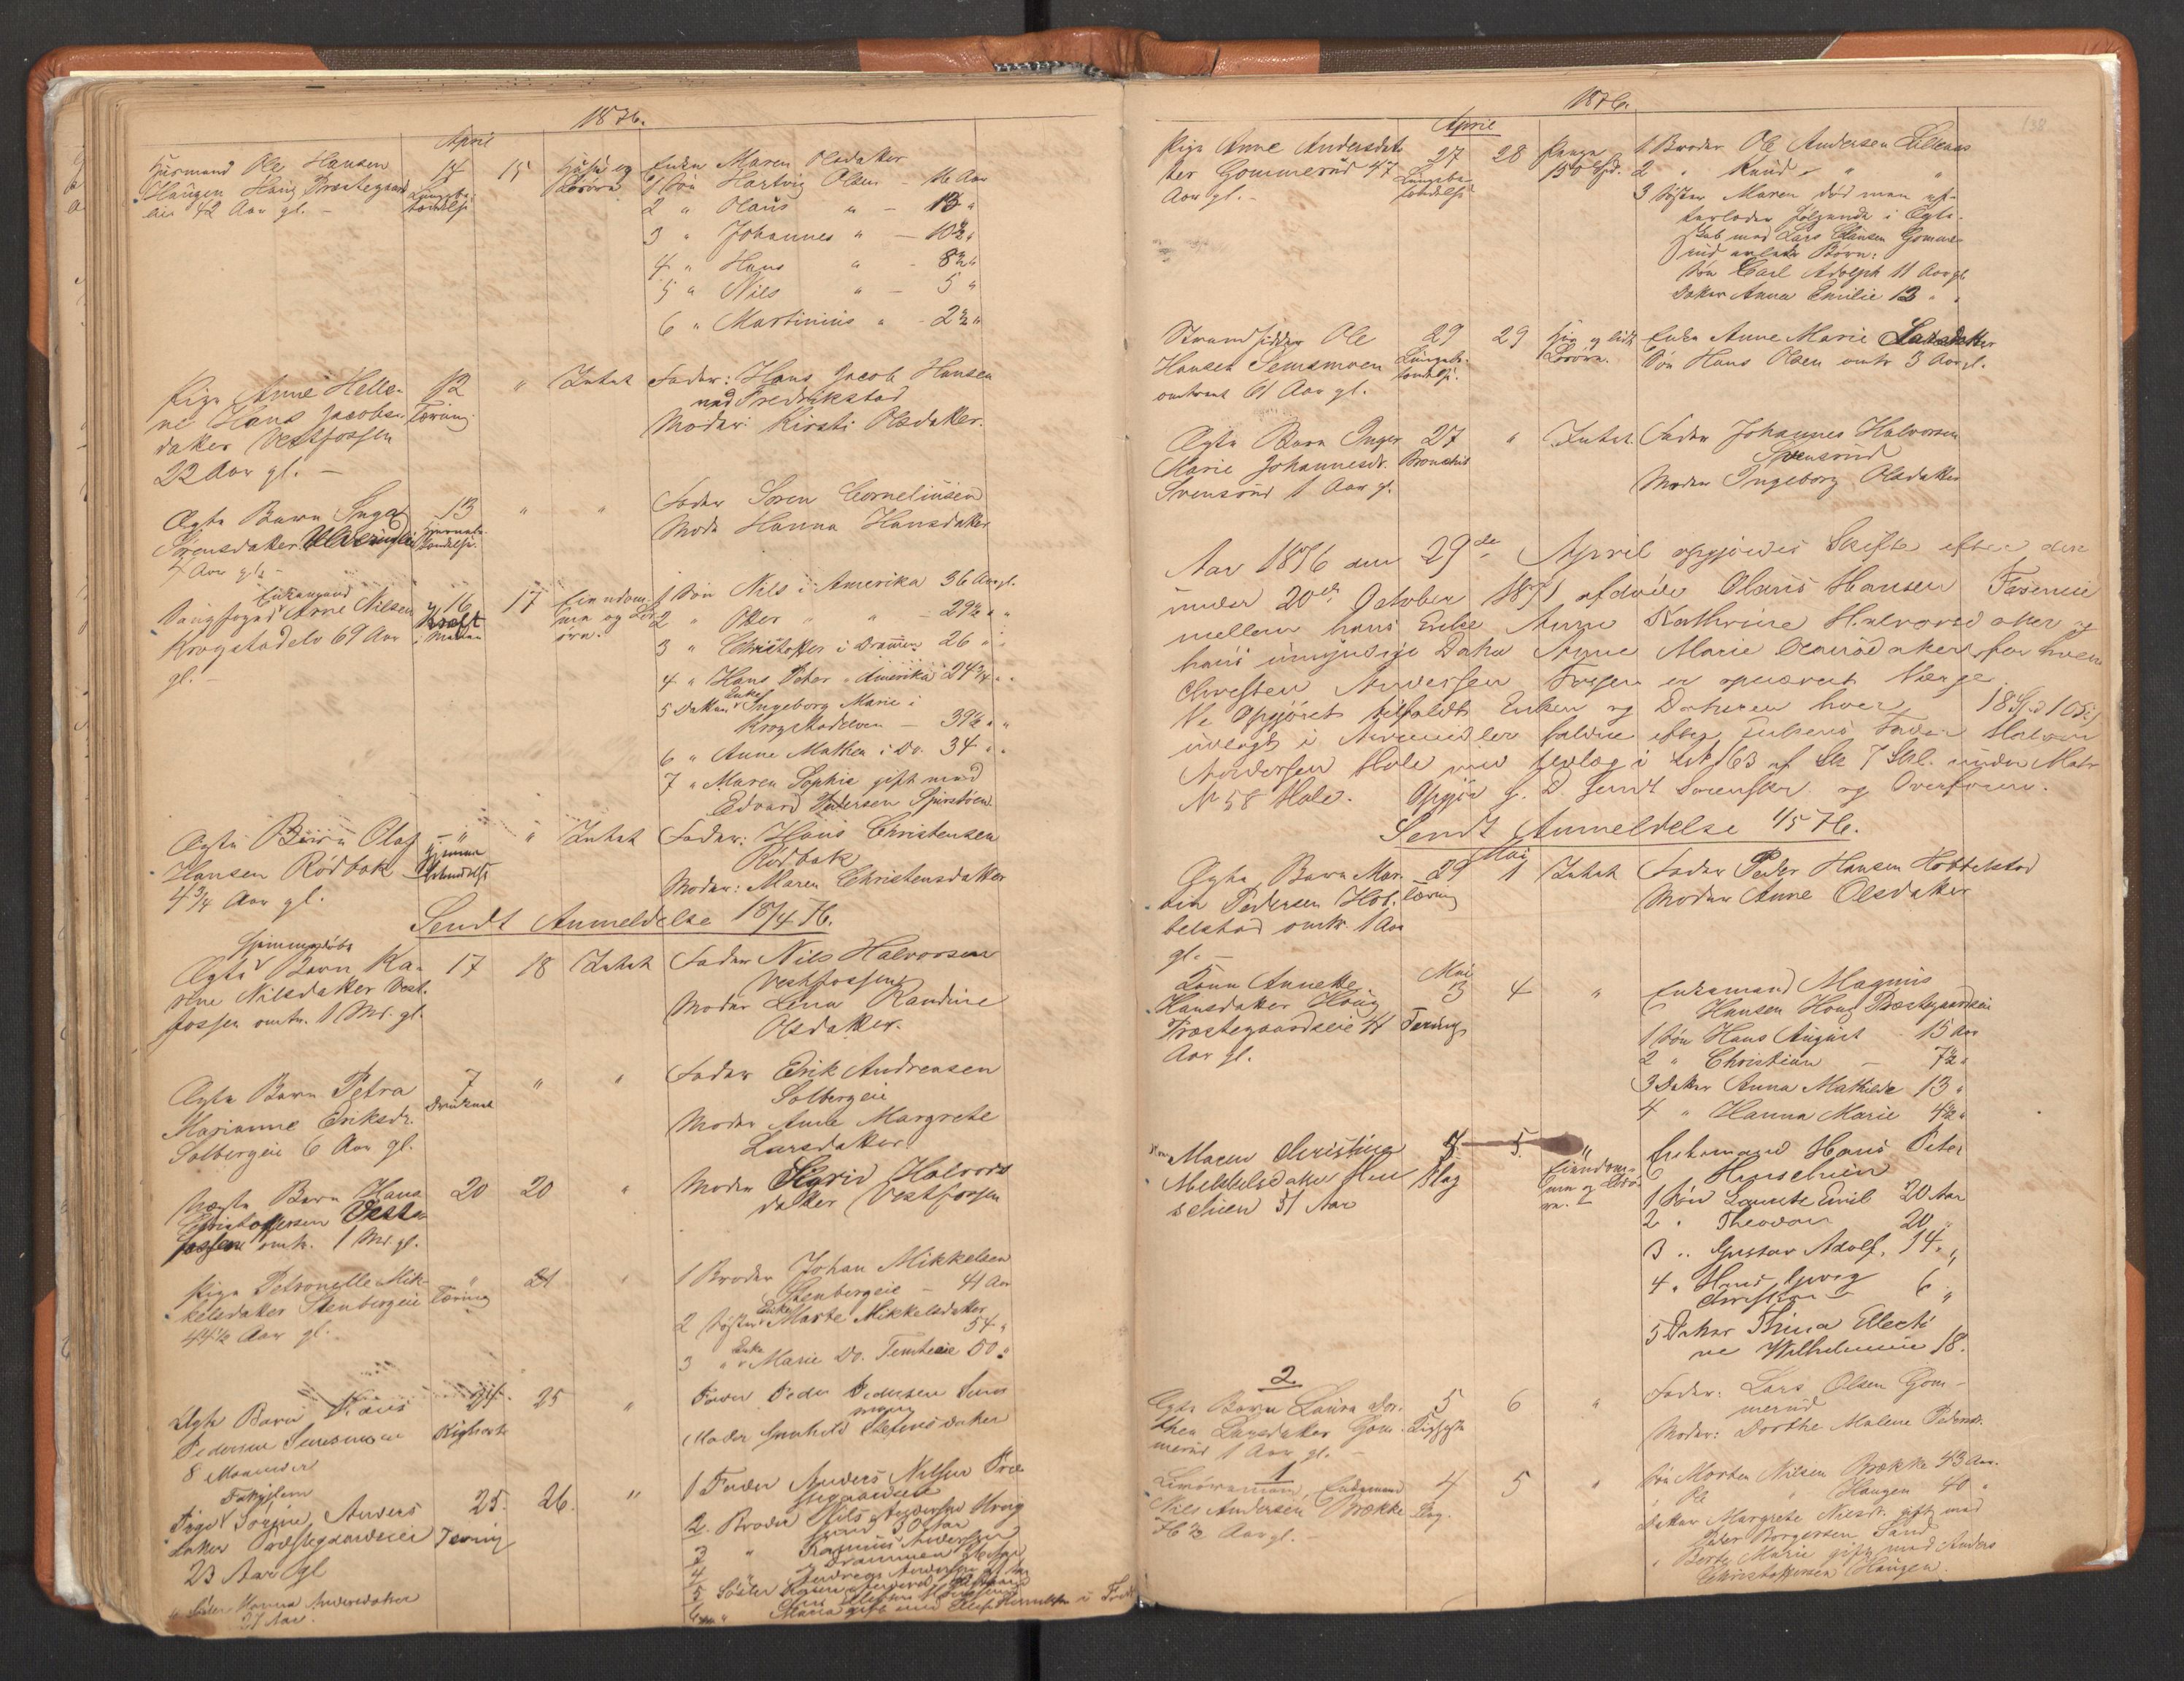 1876.
April
Husmand Ole Hansen
Haugen Haug Præstegaard
eie 42 Aar gl. —
14
Lungebe-
tændelse
15
Huse og
Løsøre
Enke Maren Olsdatter
1 Søn Hartvig Olsen — 16 Aar
2 " Olaus " — 13 "
3 " Johannes " — 10½ "
4 " Hans " - 8½ "
5 " Nils " — 5 "
6 " Martinius " - 2½ "
Pige Anne Helle-
ne Hans Jacobs-
datter Vestfossen
22 Aar gl. —
12
Tæring
"
Intet
Fader: Hans Jacob Hansen
ved Fredrikstad
Moder: Kirsti Olsdatter.
Ægte Barn Inga
Sørensdatter
4 Aar gl.
13
"
"
Fader Søren Corneliusen
Mode Hanna Hansdatter
Enkemand
Arne Nilsen
Krogstadelv 69 Aar
gl. —
16
Kræft
i Maven
17
Eiendom-
me og Løs-
øre.
1 Søn Nils i Amerika 36 Aar gl.
2 " Otter " " - 29½ " "
3 " Christoffer i Drammen 26 " "
4 " Hans Peter " Amerika 24¾ " "
5 Datter Enke Ingeborg Marie i
Krogstadelven — 39½ " "
6 " Anne Mathea i Do. 34 " "
7 " Maren Sophie gift med
Edvard Pedersen
Ægte Barn Olaf
Hansen Rødbak
4¾ Aar gl.
"
"
Intet
Fader: Hans Christensen
Rødbak
Moder: Maren Christensdatter
Sendt Anmeldelse 18/4 76.
Hjemmedøbt
Ægte Barn Ka-
rine Nilsdatter Vest-
fossen omtr. 1 Md. gl.
17
18
Intet
Fader Nils Halvorsen
Vestfossen
Moder Lena Randine
Olsdatter.
Ægte Barn Petra
Marianne Eriksdr.
Solbergeie 6 Aar gl.
7
Druknet
"
"
Fader Erik Andreasen
Solbergeie
Moder Anne Margrete
Larsdatter
Uægte Barn Hans
Christoffersen Vest-
fossen omtr. 1 Md. gl.
20
20
"
Moder Sigrid Halvors
datter Vestfossen
Pige Petronelle Mik-
kelsdatter Stenbergeie
44½ Aar gl.
"
Tæring
21
"
1 Broder Johan Mikkelsen
Stenbergeie — 41 Aar
2 Søster Enke Marte Mikkelsdatter
54 "
3 " Enke Marie Do. 50 "
Ægte Barn
Pedersen Semsmoen
8 Maaneder
24.
Kighoste
25
"
Fader Peder Pedersen Sems
moen
Moder Gunhild
Fattiglem
Pige Sorine Anders
datter Præstegaardseie
23 Aar Gl
25.
Tæring
26.
"
1 Fader Anders Nilsen Præ
stegaardseie
2. Broder Nils Andersen
3 " Rasmus Andersen
Drammen
4 " Andreas Andersen
5 Søster
6 " Maria gift med
" Søster Hanna Andersdatter
21 Aar.
1876.
138
April
Pige Anne Andersdat-
ter Gommerud 47
Aar gl. —
27
Lungebe-
tændelse
28
Penge
150 Spd.
1 Broder Ole Andersen
2 " Knud " "
3 Søster Maren død men ef-
terlader følgende i Ægte-
skab med Lars Gomme-
rud avlede Børn:
Søn Carl Adolph 11 Aar gl.
Datter Anna Emilie 13 " "
Strandsidder Ole
Hansen Semsmoen
omtrent 61 Aar gl.
29
Lungebe-
tændelse.
29
Hus og lidt
Løsøre.
Enke Anne Marie Larsdatter
Søn Hans Olsen omtr 3 Aar gl.
Ægte Barn Inger
Marie Johannesdr.
Svensrud 1 Aar gl.
27
Bronchit
"
Intet.
Fader Johannes Halvorsen
Svensrud
Moder Ingeborg Olsdatter
Aar 1876 den 29de April opgjordes Skifte efter den
under 20de October 1871 afdøde Olaus Hansen
mellem hans Enke Anne Kathrine Halvorsdatter og
hans umyndige Datter Anne Marie Olausdatter, for hvem
Christen Andersen Fossen er opnævnt Værge.
Ve Opgjøret tilfaldt Enken og Datteren hver 18 Spd 105
udlagt i Arvemidler faldne efter Enkens Fader Halvor
Andersen Hole
No 58 Hole. Opgjør s. D. sendt Sorenskr. og Overform.
Sendt Anmeldelse 1/5 76.
Mai
Ægte Barn Mar-
tin Pedersen Hob-
belstad omtr. 1 Aar
gl. —
29
Tæring
1
Intet
Fader Peder Hansen Hobbelstad
Moder Anne Olsdatter
Mai
Kone Annette
Hansdatter Houg
Præstegaardseie 44
Aar gl.
3
Tæring
4
"
Enkemand Magnus
Hansen Houg Præstegaardseie
1 Søn Hans August 15 Aar
2 " Christian — 7½ "
3 Datter Anna Mathilde 13 "
4 " Hanna Marie 4½ "
Kone Maren Christine
Mikkelsdatter Hen
schien 51 Aar
4
Slag
5.
"
Eiendom-
me og Løsø-
re. —
Enkemand Hans Peter
Henschien
1 Søn Laurits Emil 20 Aar
2 " Theodor 20 "
3 " Gustav Adolf. 14 "
4 " Hans Georg
Christian 6 "
5 Datter Thina Electi
ne Wilhelmine 18.
2.
Ægte Barn Laura Do-
thea Larsdatter Gom-
merud 1 Aar gl. —
5
6
"
Fader: Lars Olsen Gom-
merud
Moder: Dorthe Malene Pedersdr.
1
Enkemand
Nils Andersen Brække
76½ Aar gl. —
4
Slag.
5
"
Søn Morten Nilsen Brække 43 Aar.
" Ole " Haugen 40 "
Datter Margrete Nilsdr. gift med
Peder Borgersen Sand
" Berte Marie gift med Anders
Christoffersen Haugen.